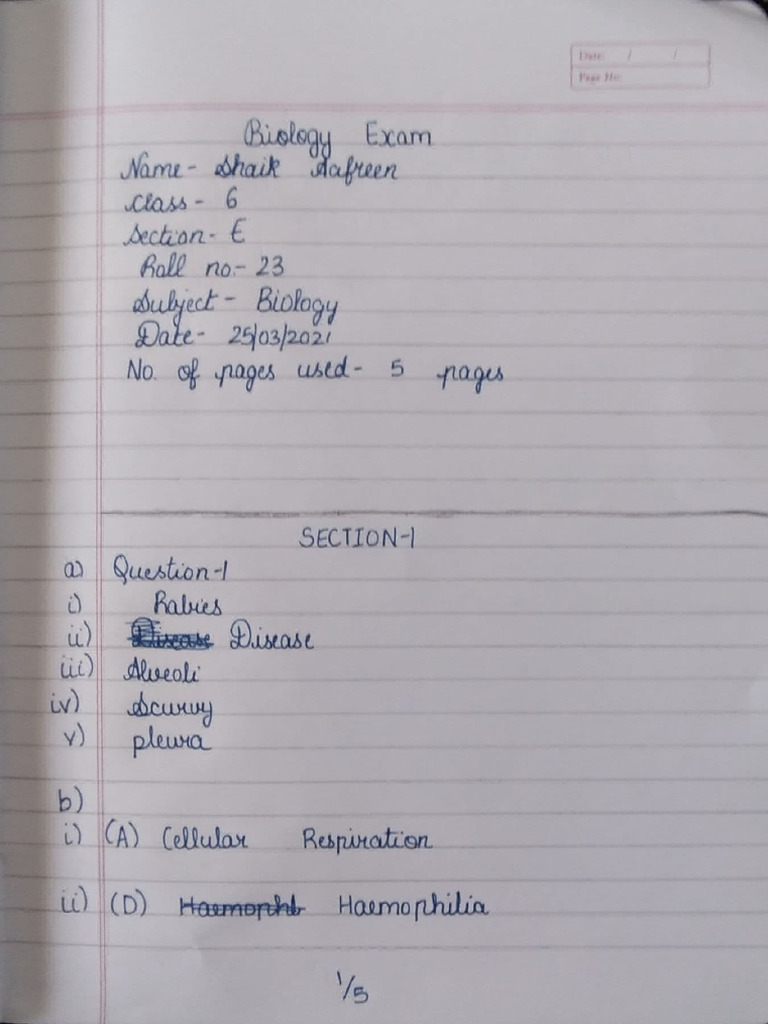 Date: / /
Page No:
Biology Exam
Name- Shaik Aafreen
Class- 6
Section- E
Roll no.- 23
Subject- Biology
Date- 25/03/2021
No. of pages used- 5 pages
SECTION-1
a) Question-1
i) Rabies
ii) Disease Disease
iii) Alveoli
iv) Scurvy
v) pleura
b)
i) (A) Cellular Respiration
ii) (D) Haemophl Haemophilia
1/5